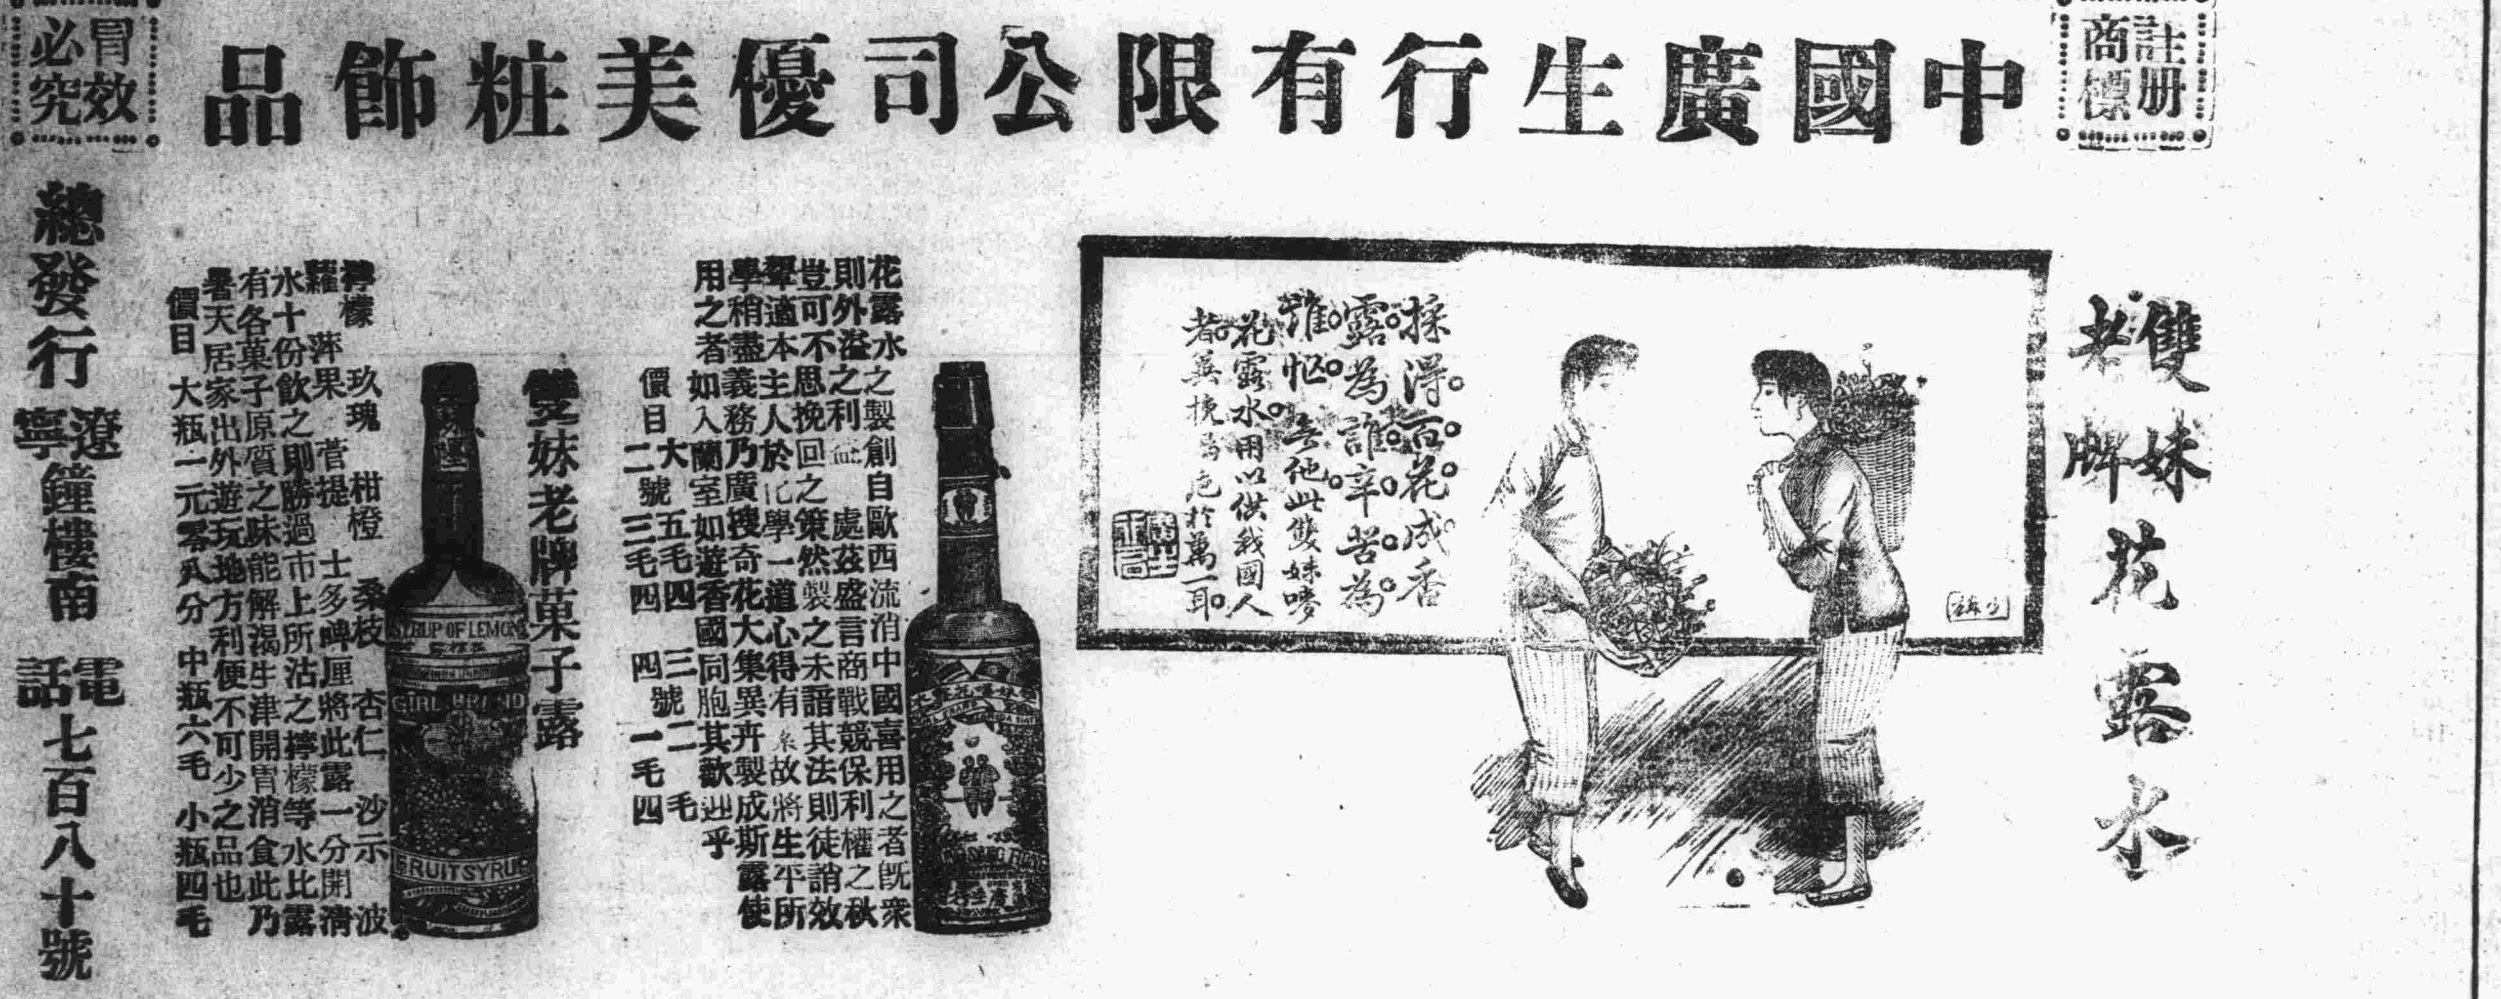 註册
商標
中國廣生行有限公司優美粧飾品
冒效
必究
雙妹
老牌
花露水
採得百花成香
露為誰辛苦為
誰忙無他此雙妹嘜
花露水用以供我國人
者冀挽馬卮於萬一耳
花露水之製創自歐西流消中國喜用之者既衆
則外溢之利益處茲盛言商戰競保利權之秋
豈可不思挽回之策然製之未諳其法則徒誚效
顰適本主人於化學一道心得有素故將生平所
學稍盡義務乃廣搜奇花大集異卉製成斯露使
用之者如入蘭室如遊香國同胞其歡迎乎
價目 大 五毛四 三號 二毛
二號 三毛四 四 一毛四
GIRL BRAND FLORIDA WATER
KWONG SANG HONG
雙妹老牌菓子露
SYRUP OF LEMON
GIRL BRAND
FRUIT SYRUP
檸檬 玖瑰 柑橙 桑枝 杏仁 沙示 波
羅 萍果 菩提 士多啤厘將此露一分開清
水十份飲之則勝過市上所沽之檸檬等水比露
有各菓子原質之味能解渴生津開胃消食此乃
暑天居家出外遊玩地方利便不可少之品也
價目 大瓶一元零八分 中瓶六毛 小瓶四毛
總發行 遼寧鐘樓南 電話七百八十號